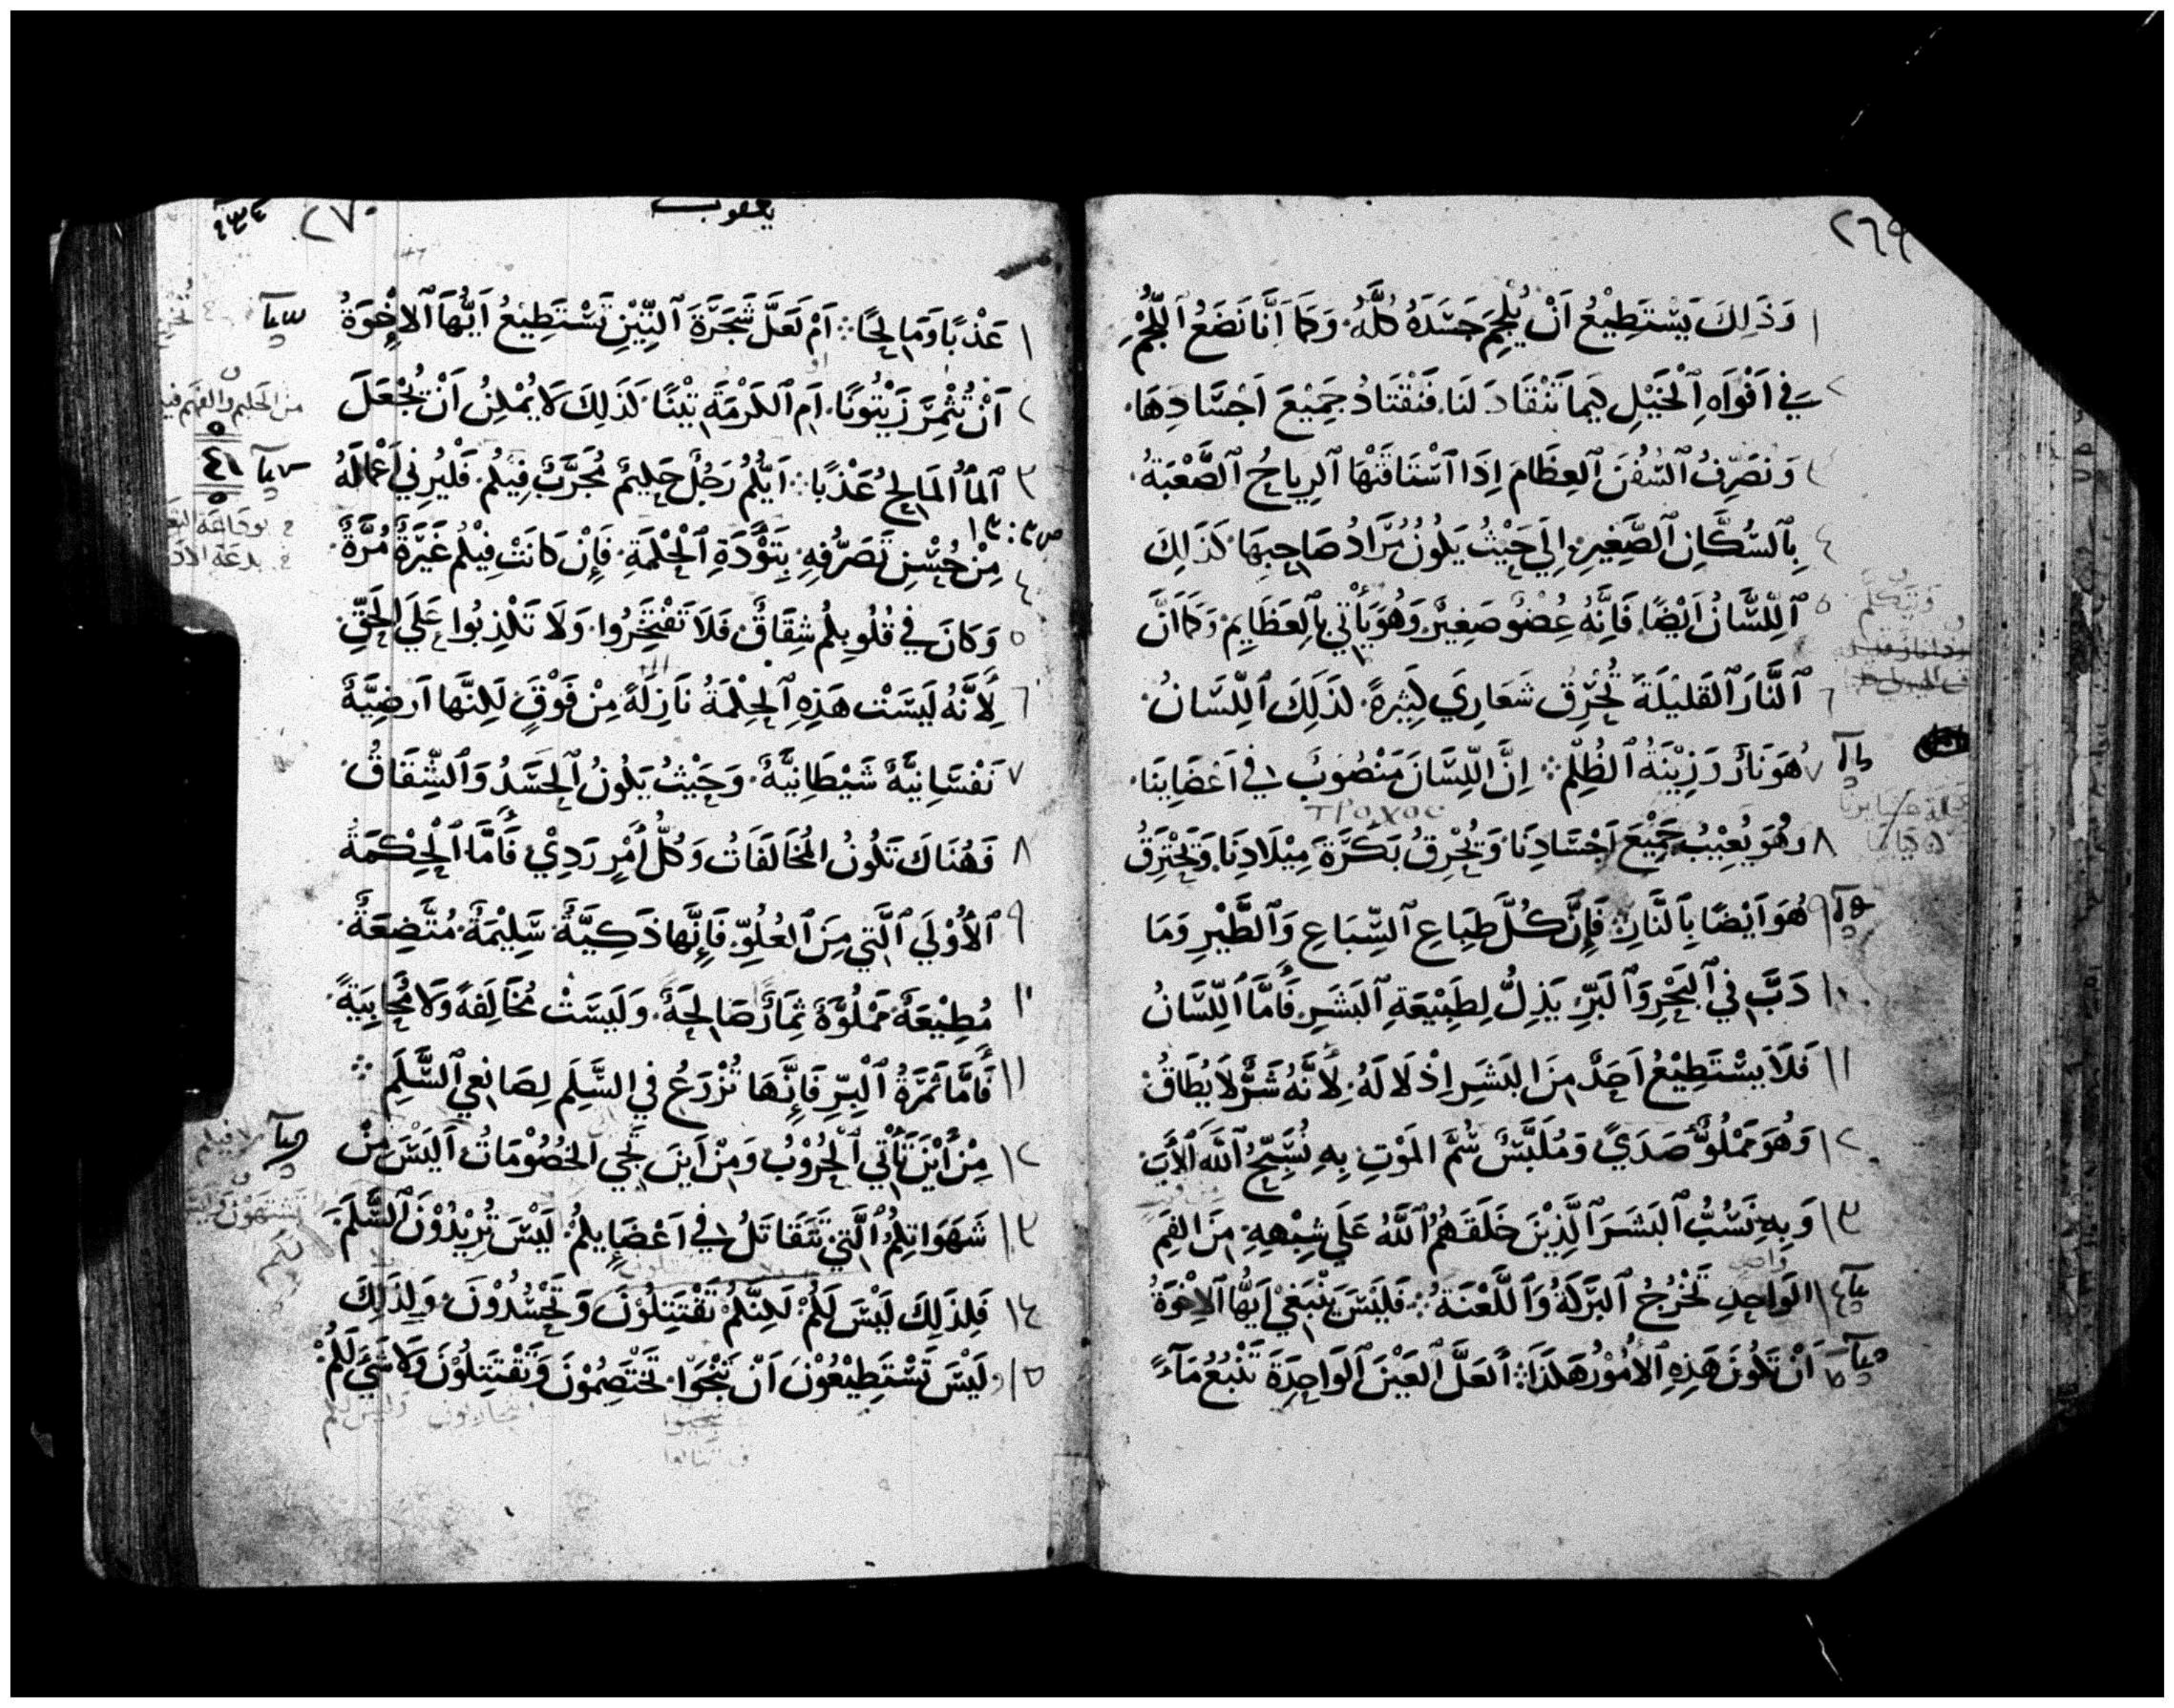 ٢٦٩
١ وَذَلِكَ يَسْتَطِيْعُ اَنْ يُلْجِمَ جَسَدَهُ كُلَّهُ. وَكَمَا اَنَّا نَضَعُ اَللُّجُمْ
٢ فِي اَفْوَاهِ اَلْخَيْلِ كَيما تَنْقَادَ لَنَا. فَنَقْتَادُ جَمِيْعَ اَجْسَادِهَا.
٣ وَنصَرِّفُ اَلسُّفُنَ اَلعِظَامَ اِذَا اَسْتَاقَتْهَا اَلرِياحُ اَلصَّعْبَةُ.
٤ بِاَلسُّكَّانِ اَلصَّغِيرِ. اِلَي حَيْثُ يَكُونُ مُرَادُ صَاحِبِهَا. كَذَلِكَ
٥ اَللِّسَانُ اَيْضًا. فَاِنَّهُ عِضْوٌ صَغِيْرٌ وَهُوَ يَأْتِي بِاَلعَظَايِمْ. وَكَمَا اَنَّ
٦ اَلنَّارَ اَلقَليْلَةَ تُحْرِقُ شَعَارِيَ كَثِيرةً. كذَلِكَ اَللِّسَانُ.
٧ هُوَ نَارٌ وَزِيْنَةُ اَلظُلْمِ ܀ اِنَّ اللِّسَانَ مَنْصُوبٌ فِي اَعْضَايِنَا.
τροχος
٨ وهُوَ يُعِيْبُ جَمِيْعَ اَجْسَادِنَا. وَتُحْرِقُ بَكَرَةَ مِيْلَادِنَا. وَتَحْتَرِقُ
٩ هُوَ اَيْضًا بِاَلنَّارِ ܀ فَاِنَّ كُلَّ طِبَاعِ اَلسِّبَاعِ وَاَلطَّيْرِ وَمَا
١٠ دَبَّ فِي اَلبَحْرِ وَاَلبَرِّ. يَذِلُّ لِطَبِيْعَةِ اَلبَشَرِ. فَأَمَّا اَللِّسَانُ
١١ فَلَا يَسْتَطِيْعُ اَحَدٌ مِنَ البَشَرِ اِذْلَالَهُ. لِأَنَّهُ شَرٌّ لَا يُطَاقُ.
١٢ وَهُوَ مَمْلُوٌّ صَدَيً وَمُلَبَّسٌ سُمَّ المَوْتِ بِهِ نُسَبِّحُ اَللَّهَ اَلأَبَ.
١٣ وَبِهِ نَسُبُّ اَلبَشَرَ اَلَّذِيْنَ خَلَقَهُمُ اَللَّهُ عَلَي شِبْهِهِ. مِنَ الفَمِ
١٤ الوَاحِدِ تَخْرُجُ اَلبَرَكَةُ وَاَللَّعْنَةُ ܀ فَلَيْسَ يَنْبَغِيْ اَيُّهَا اَلاِخْوَةُ
١٥ اَنْ تَكُونَ هَذِهِ اَلأُمُوْرُ هَكَذَا ܀ اَلعَلَّ اَلعَيْنَ اَلوَاحِدَةَ تَنْبُعُ مَآءً
٢٧٠
يعقوب
١ عَذْبًا وَمَالِحًا ܀ اَمْ لَعَلَّ شَجَرَةَ اَلتِّيْنِ تَسْتَطِيْعُ اَيُّهَا اَلاِخْوَةُ
٢ اَنْ تُثْمِرَ زَيْتُونًا. اَمِ اَلكَرْمَةَ تِيْنًا. كَذَلِكَ لَا يُمْكِنُ اَنْ يُجْعَلَ
٣ اَلمَاُ المَالِحُ عَذْبًا ܀ اَيُّكُمْ رَجُلٌ حَلِيمٌ مُجَرَّبٌ فِيكُمْ. فَلْيُرِنِي اَعْمَالَهُ
ص ٣ : ١٣
٤ مِنْ حُسْنِ تَصَرُّفِهِ. بِتَوْدَةِ اَلحِكْمَةِ. فَاِنْ كَانَتْ فِيكُمْ غَيْرَةٌ مُرَّةٌ.
٥ وَكَانَ فِي قُلُوبِكُمْ شِقَاقٌ. فَلَا تَفْتَخِرُوا. وَلَا تَكْذِبُوا عَلَي الحَقِّ.
٦ لِأَنَّهُ لَيسَتْ هَذِهِ اَلحِكْمَةُ نَازِلَةً مِنْ فَوْقٍ. لَكِنَّها اَرضِيَّةٌ
٧ نَفْسَانِيَّةٌ شَيْطَانِيَّةٌ. وَحَيْثُ يَكُونُ اَلحَسَدُ وَاَلشِّقَاقُ.
٨ فَهُنَاكَ تَكُونُ المُخَالَفَاتُ وَكُلُّ أَمْرٍ رَدِيْ. فَأَمَّا اَلْحِكمَةُ
٩ اَلأُوْلَي اَلَّتِي مِنَ اَلعُلُوِّ. فَاِنَّها ذَكِيَّةٌ. سَلِيْمَةٌ. مُتَّضِعَةٌ.
١٠ مُطِيْعَةٌ. مَمْلُوَّةٌ ثِمَارًا صَالِحَةً. وَلَيسَتْ مُخَالِفةً وَلَا مُحَابِيَةً.
١١ فَأَمَّا ثَمَرَةُ اَلْبِرِّ فَاِنَّهَا تُزْرَعُ فِي السَّلَمِ لِصَانِعِي اَلسَّلَمِ ܀
١٢ مِنْ أَيْنَ تَأْتِي اَلْحُرُوْبُ وَمِنْ اَينَ تَجِي الخُصُوْمَاتُ اَلَيْسَ مِنْ
١٣ شَهَوَاتِكُمُ اَلَّتِي تَتَقَاتَلُ فِي اَعْضَايِكُمْ. لَيْسَ تُرِيْدُوْنَ السَّلَمَ.
١٤ فَلِذَلِكَ لَيْسَ لَكُمْ لَكِنَّكُمْ تَقْتَتِلُوْنَ وَتَحْسُدُوْنَ. وَلِذَلِكَ
١٥ لَيْسَ تَسْتَطِيْعُوْنَ اَنْ تَنْجَوْا. تَخْتَصِمُوْنَ وَتَقْتَتِلُوْنَ وَلَا شَيَ لَكُمْ.